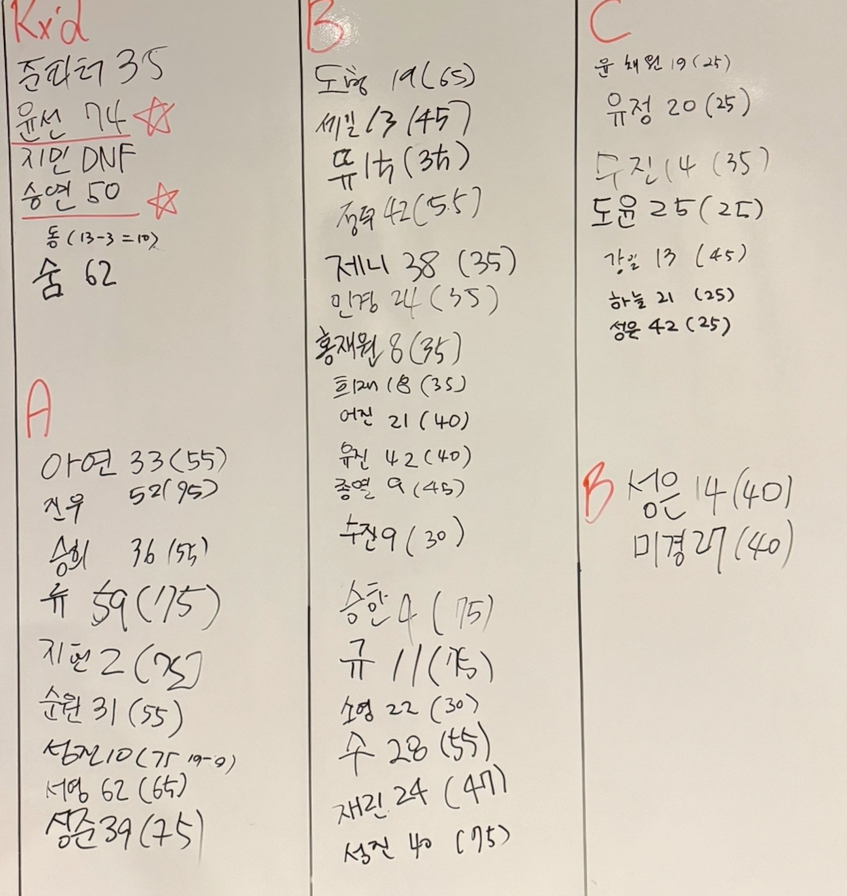 Rx'd
준파터 35
윤선 74 ☆
지민 DNF
승연 50 ☆
동 (13-3=10)
숨 62
A
아연 33(55)
진우 52(95)
승희 36(55)
류 59(75)
지현 2(75)
순원 31(55)
성진10(75 19-9)
서영 62(65)
성준39(75)
B
도형 19(65)
세일 13(45)
뜌
정우 42(55)
제니 38(35)
민경 24(35)
홍재원 8(35)
희재 18(35)
어진 21(40)
유진 42(40)
종열 9(45)
수진9(30)
승한 4(75)
규 11(75)
소영 22(30)
수 28(55)
재린 24(47)
성진 40(75)
C
윤채원 19(25)
유정 20(25)
수진 14(35)
도윤 25(25)
강일 13(45)
하늘 21(25)
성은 42(25)
B 성은 14(40)
미경27(40)